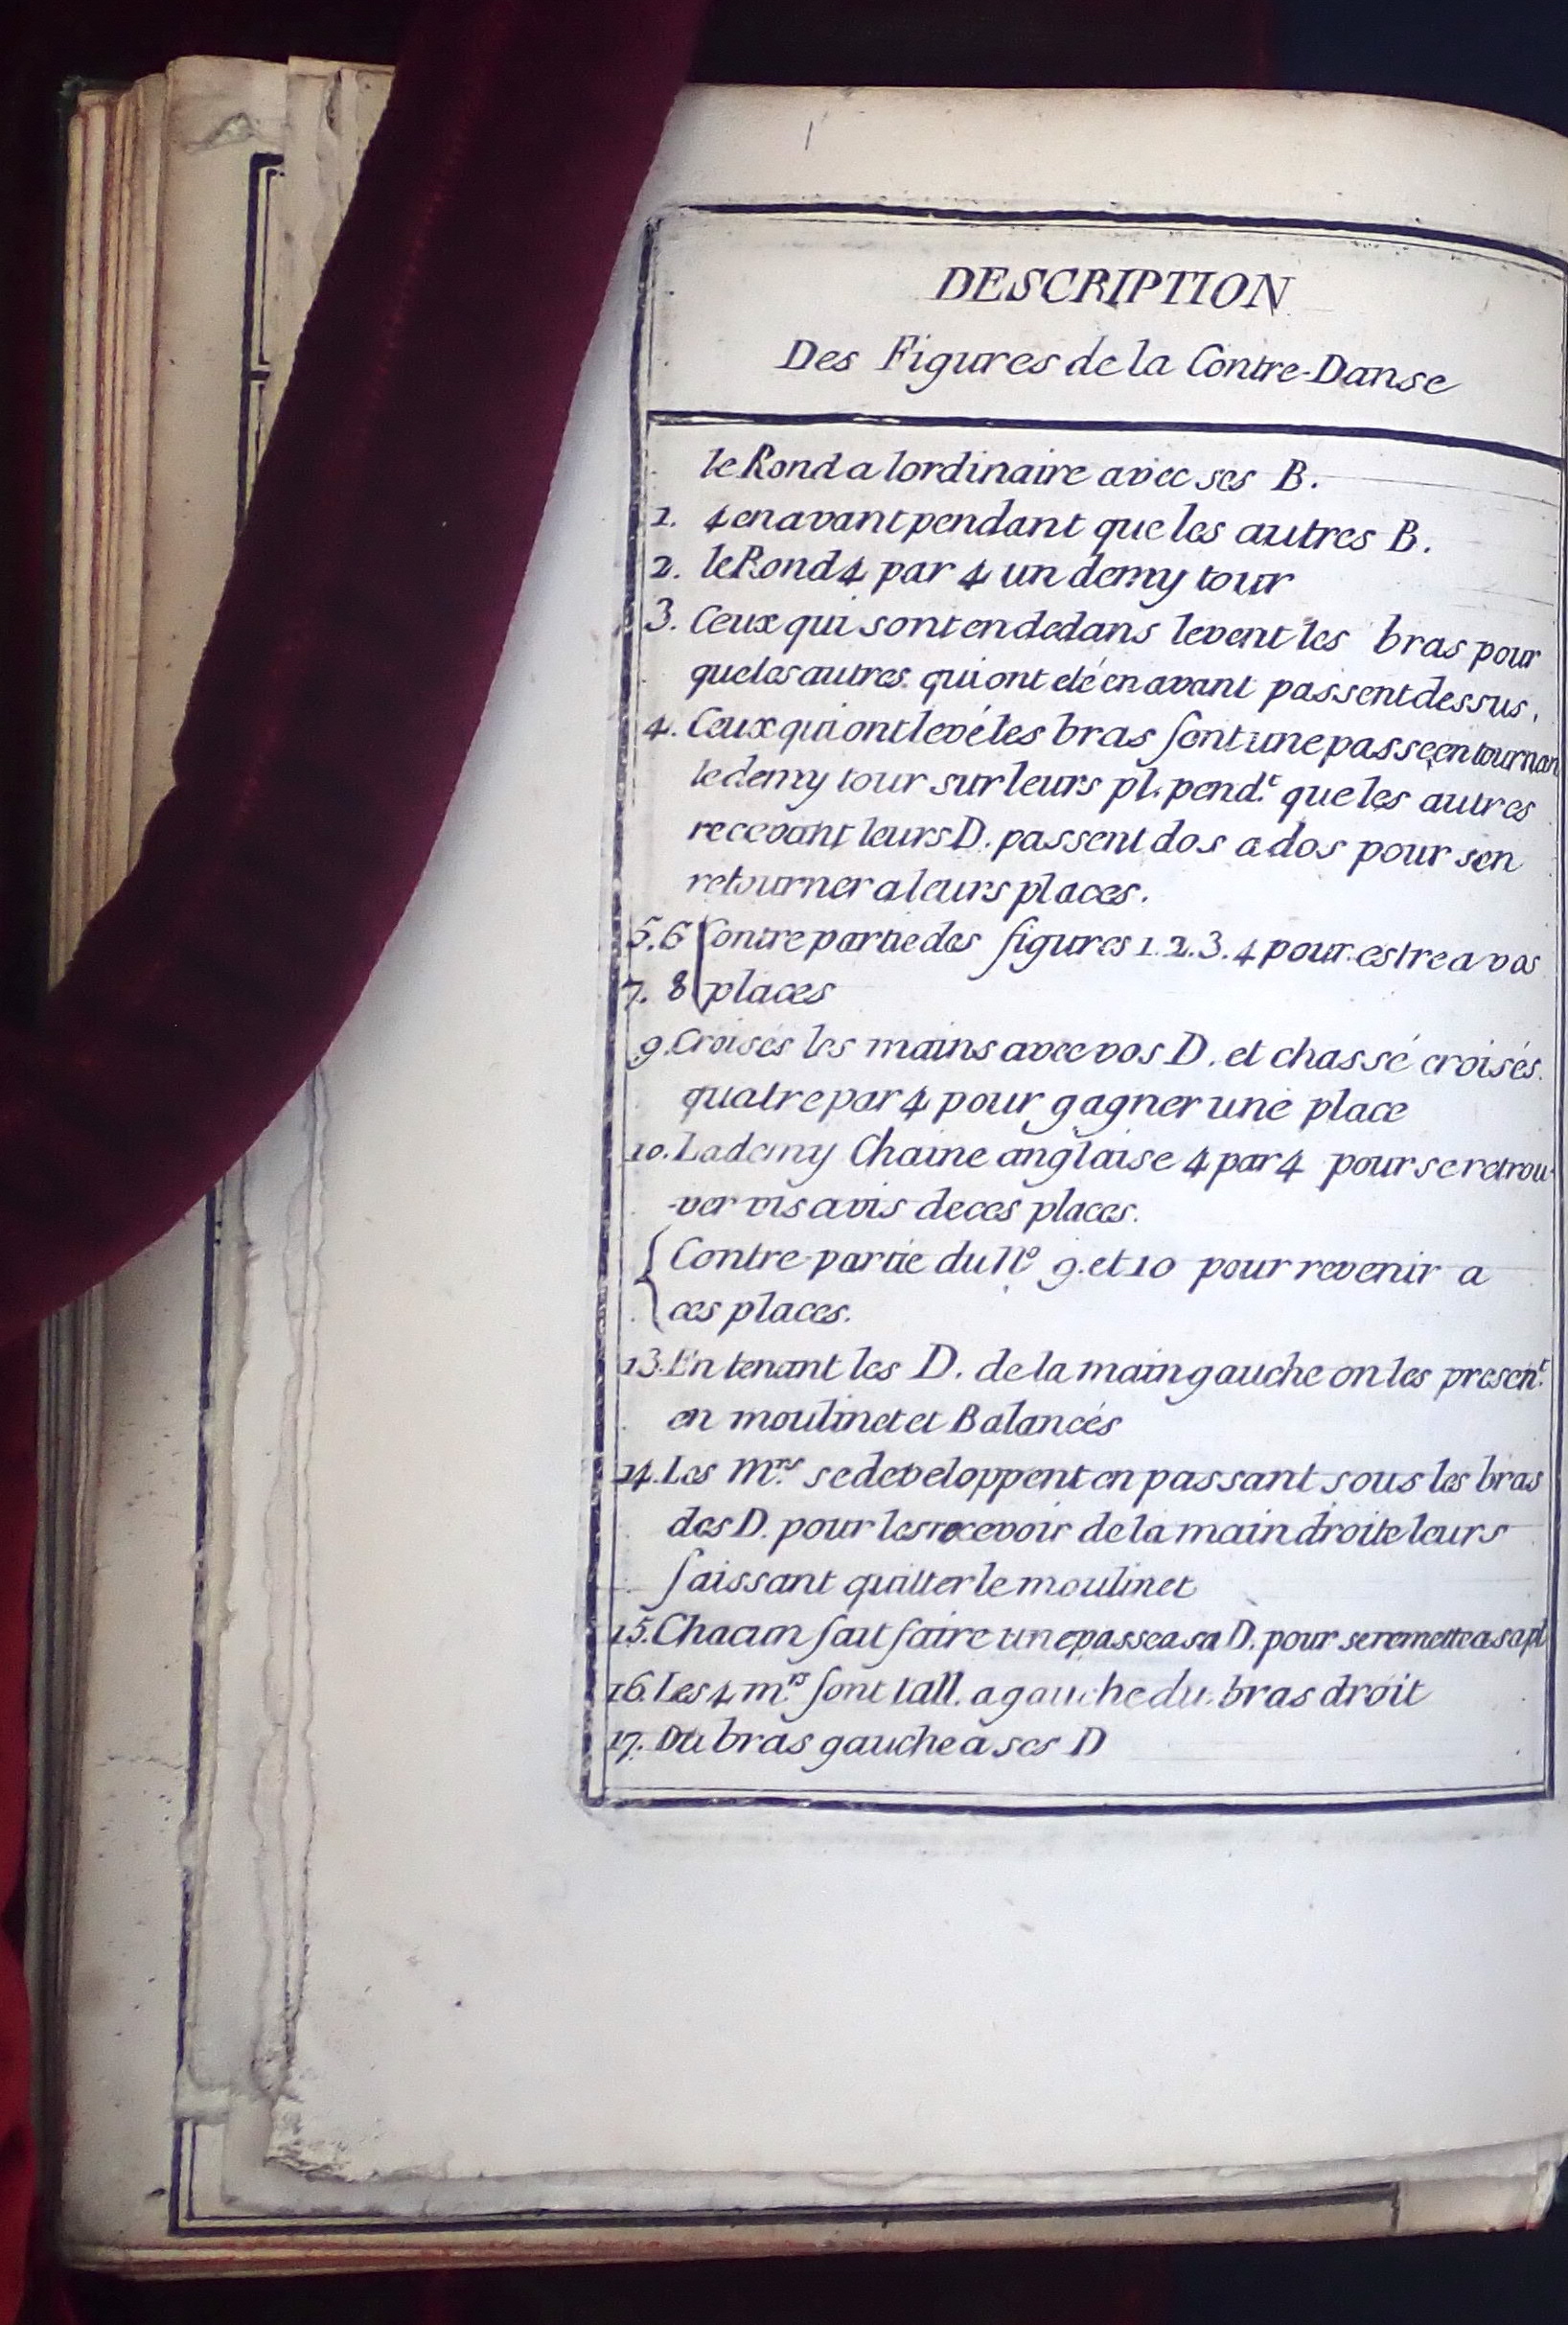 DESCRIPTION
Des Figures de la Contre-Danse
le Rond a lordinaire avec ses B.
1. 4 en avant pendant que les autres B.
2. le Rond 4 par 4 un demy tour
3. Ceux qui sont en dedans levent les bras pour
que les autres qui ont eté en avant passent dessus.
4. Ceux qui ont levé les bras font une passe en tournan
le demy tour sur leurs pl. pend.t que les autres
recevant leurs D. passent dos a dos pour sen
retourner a leurs places.
5. 6 Contre partie des figures 1. 2. 3. 4 pour estre a vos
7. 8 places
9. Croisés les mains avec vos D. et chassé croisés.
quatre par 4 pour gagner une place
10. La demy Chaine anglaise 4 par 4 pour se retrou-
-ver vis a vis de ces places.
Contre-partie du No 9. et 10 pour revenir a
ces places.
13. En tenant les D. de la main gauche on les presen.t
en moulinet et Balancés
14. Les M.rs se developpent en passant sous les bras
des D. pour les recevoir de la main droite leurs
faissant quitter le moulinet
15. Chacun fait faire une passe a sa D. pour se remettre a sa pl
16. Les 4 m.rs font lall. a gauche du bras droit
17. Du bras gauche à ses D